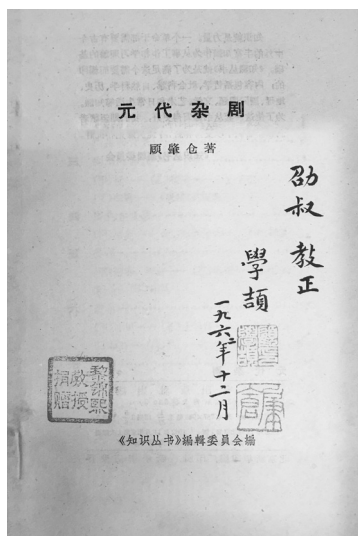 元代杂剧
顾肇仓著
劭叔 教正
學頡
一九六二年十二月
黎錦熙
教授
捐贈
《知识丛书》編輯委員会編